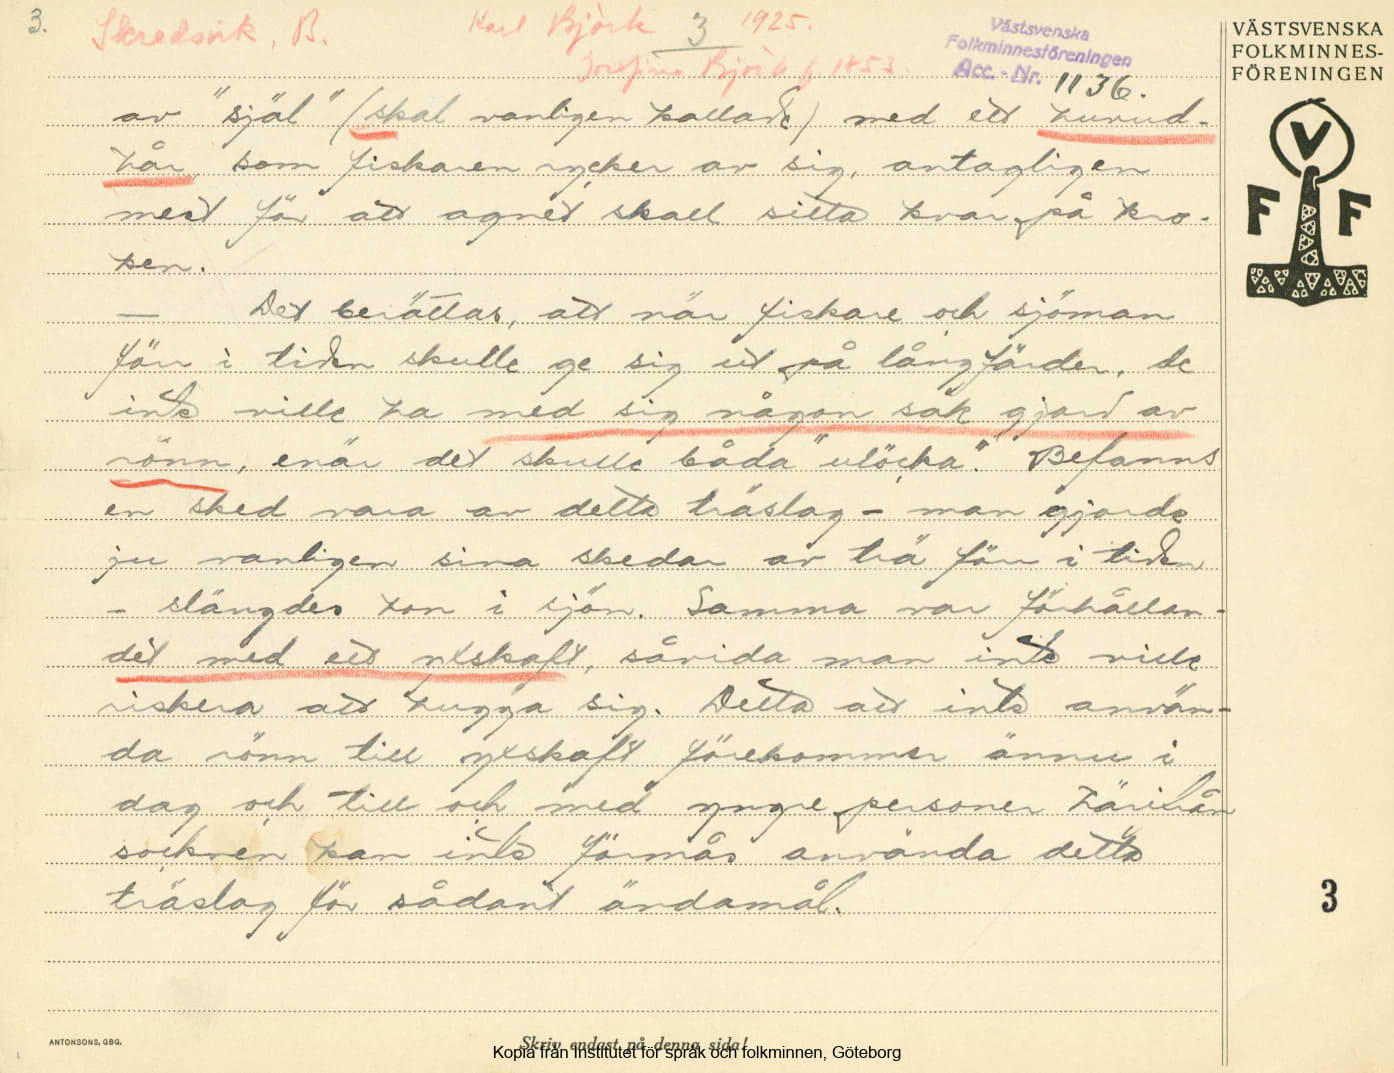 3.
Skredsvik, B.
Karl Björk
3
1925.
Josefina Björk f. 1853.
Västsvenska
Folkminnesföreningen
Acc. - Nr. 1136.
VÄSTSVENSKA
FOLKMINNES-
FÖRENINGEN
V
F F
av "själ" (skal vanligen kallade) med ett huvud-
hår, som fiskaren rycker av sig, antagligen
mest för att agnet skall sitta kvar på kro-
ken.
— Det berättas, att när fiskare och sjöman
förr i tiden skulle ge sig ut på långfärder, de
inte ville ha med sig någon sak gjord av
rönn, enär det skulle båda "olöcka". Befanns
en sked vara av detta träslag - man gjorde
ju vanligen sina skedar av trä förr i tiden
- slängdes hon i sjön. Samma var förhållan-
det med ett yxskaft, såvida man inte ville
riskera att hugga sig. Detta att inte använ-
da rönn till yxskaft förekommer ännu i
dag och till och med yngre personer härifrån
socknen kan inte förmås använda detta
träslag för sådant ändamål.
3
ANTONSONS, GBG.
Skriv endast på denna sida!
Kopia från Institutet för språk och folkminnen, Göteborg